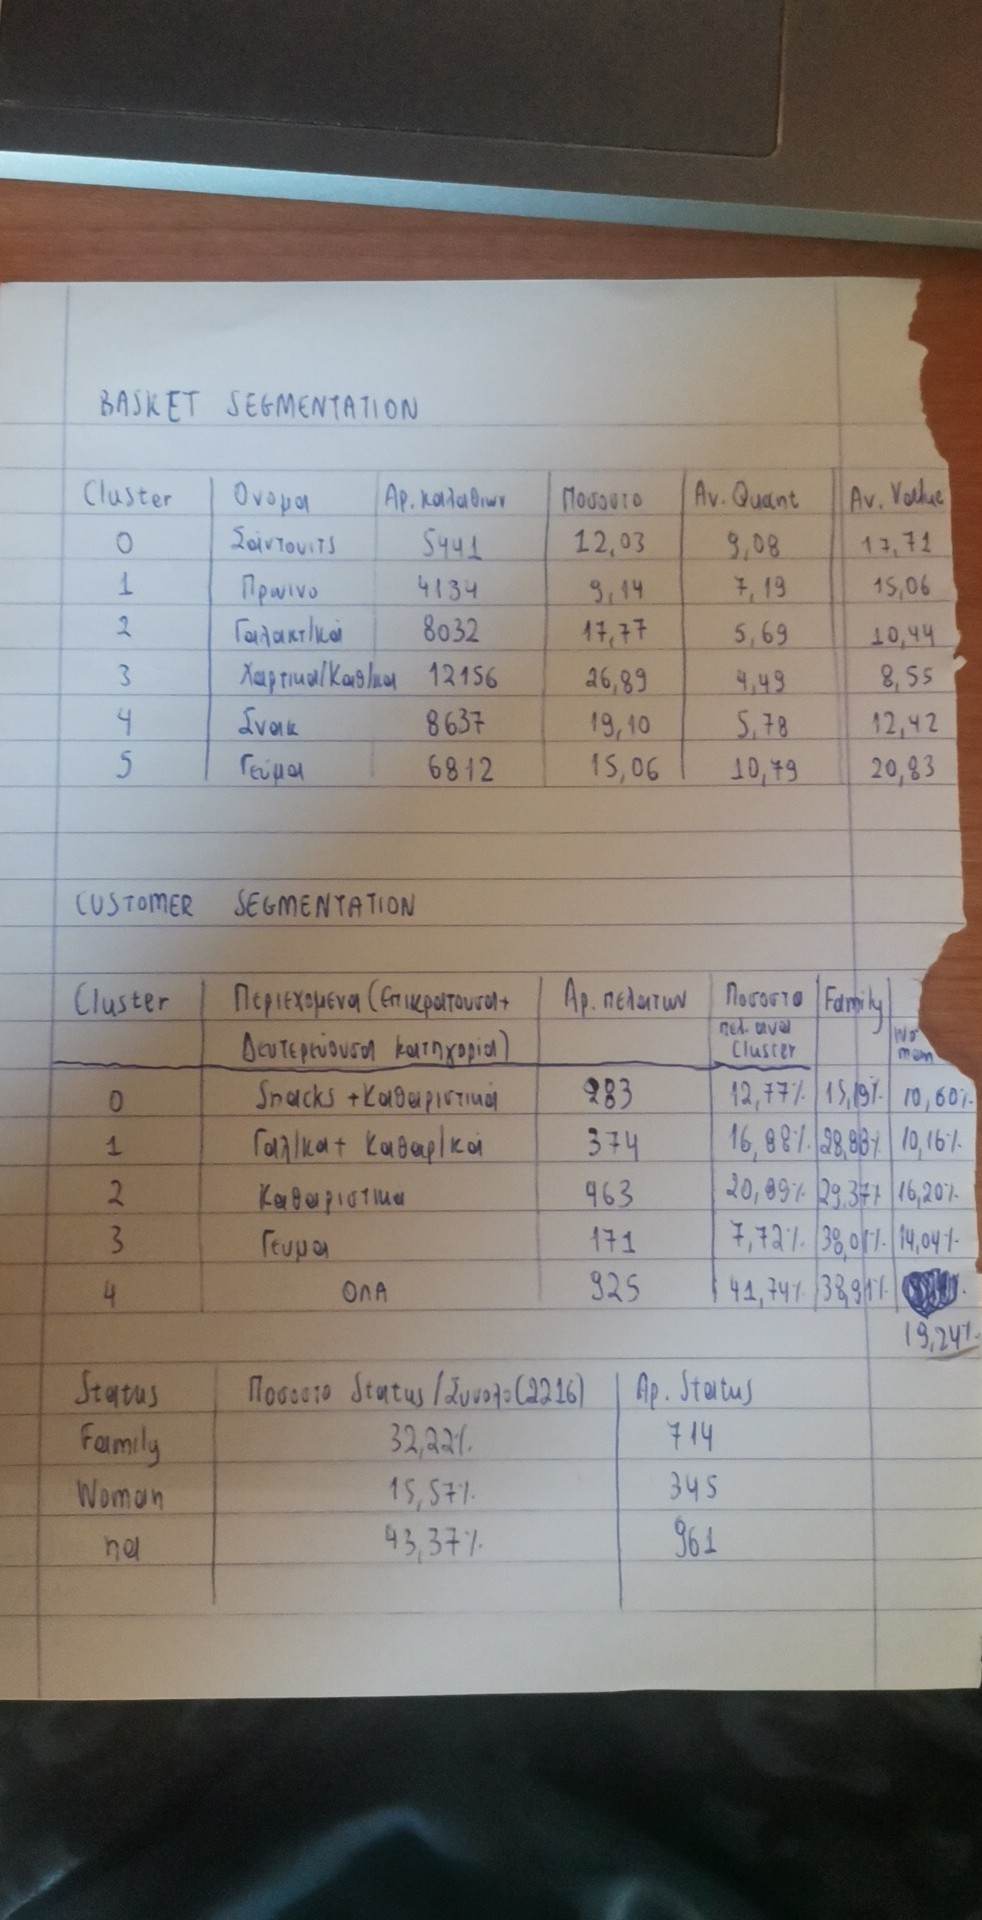 BASKET SEGMENTATION
Cluster Ονομα Αρ. καλαθιων Ποσοστο Av. Quant Av. Value
0 Σάντουιτς 5441 12,03 9,08 17,71
1 Πρωινο 4134 9,14 7,19 15,06
2 Γαλακτ/κά 8032 17,77 5,69 10,44
3 Χαρτικα/Καθ/κα 12156 26,89 4,49 8,55
4 Σνακ 8637 19,10 5,78 12,42
5 Γεύμα 6812 15,06 10,79 20,83
CUSTOMER SEGMENTATION
Cluster Περιεχομενα (Επικρατουσα+ Αρ. πελατων Ποσοστο Family
Δευτερεύουσα κατηγορία) πελ. ανα Wo
Cluster man
0 Snacks + Καθαριστικά 283 12,77% 15,19% 10,60%
1 Γαλ/κα + Καθαρ/κά 374 16,88% 28,88% 10,16%
2 Καθαριστικα 463 20,89% 29,37% 16,20%
3 Γευμα 171 7,72% 38,01% 14,04%
4 ΟΛΑ 925 41,74% 38,91%
19,24%
Status Ποσοστο Status/Συνολο(2216) Αρ. Status
Family 32,22% 714
Woman 15,57% 345
na 43,37% 961